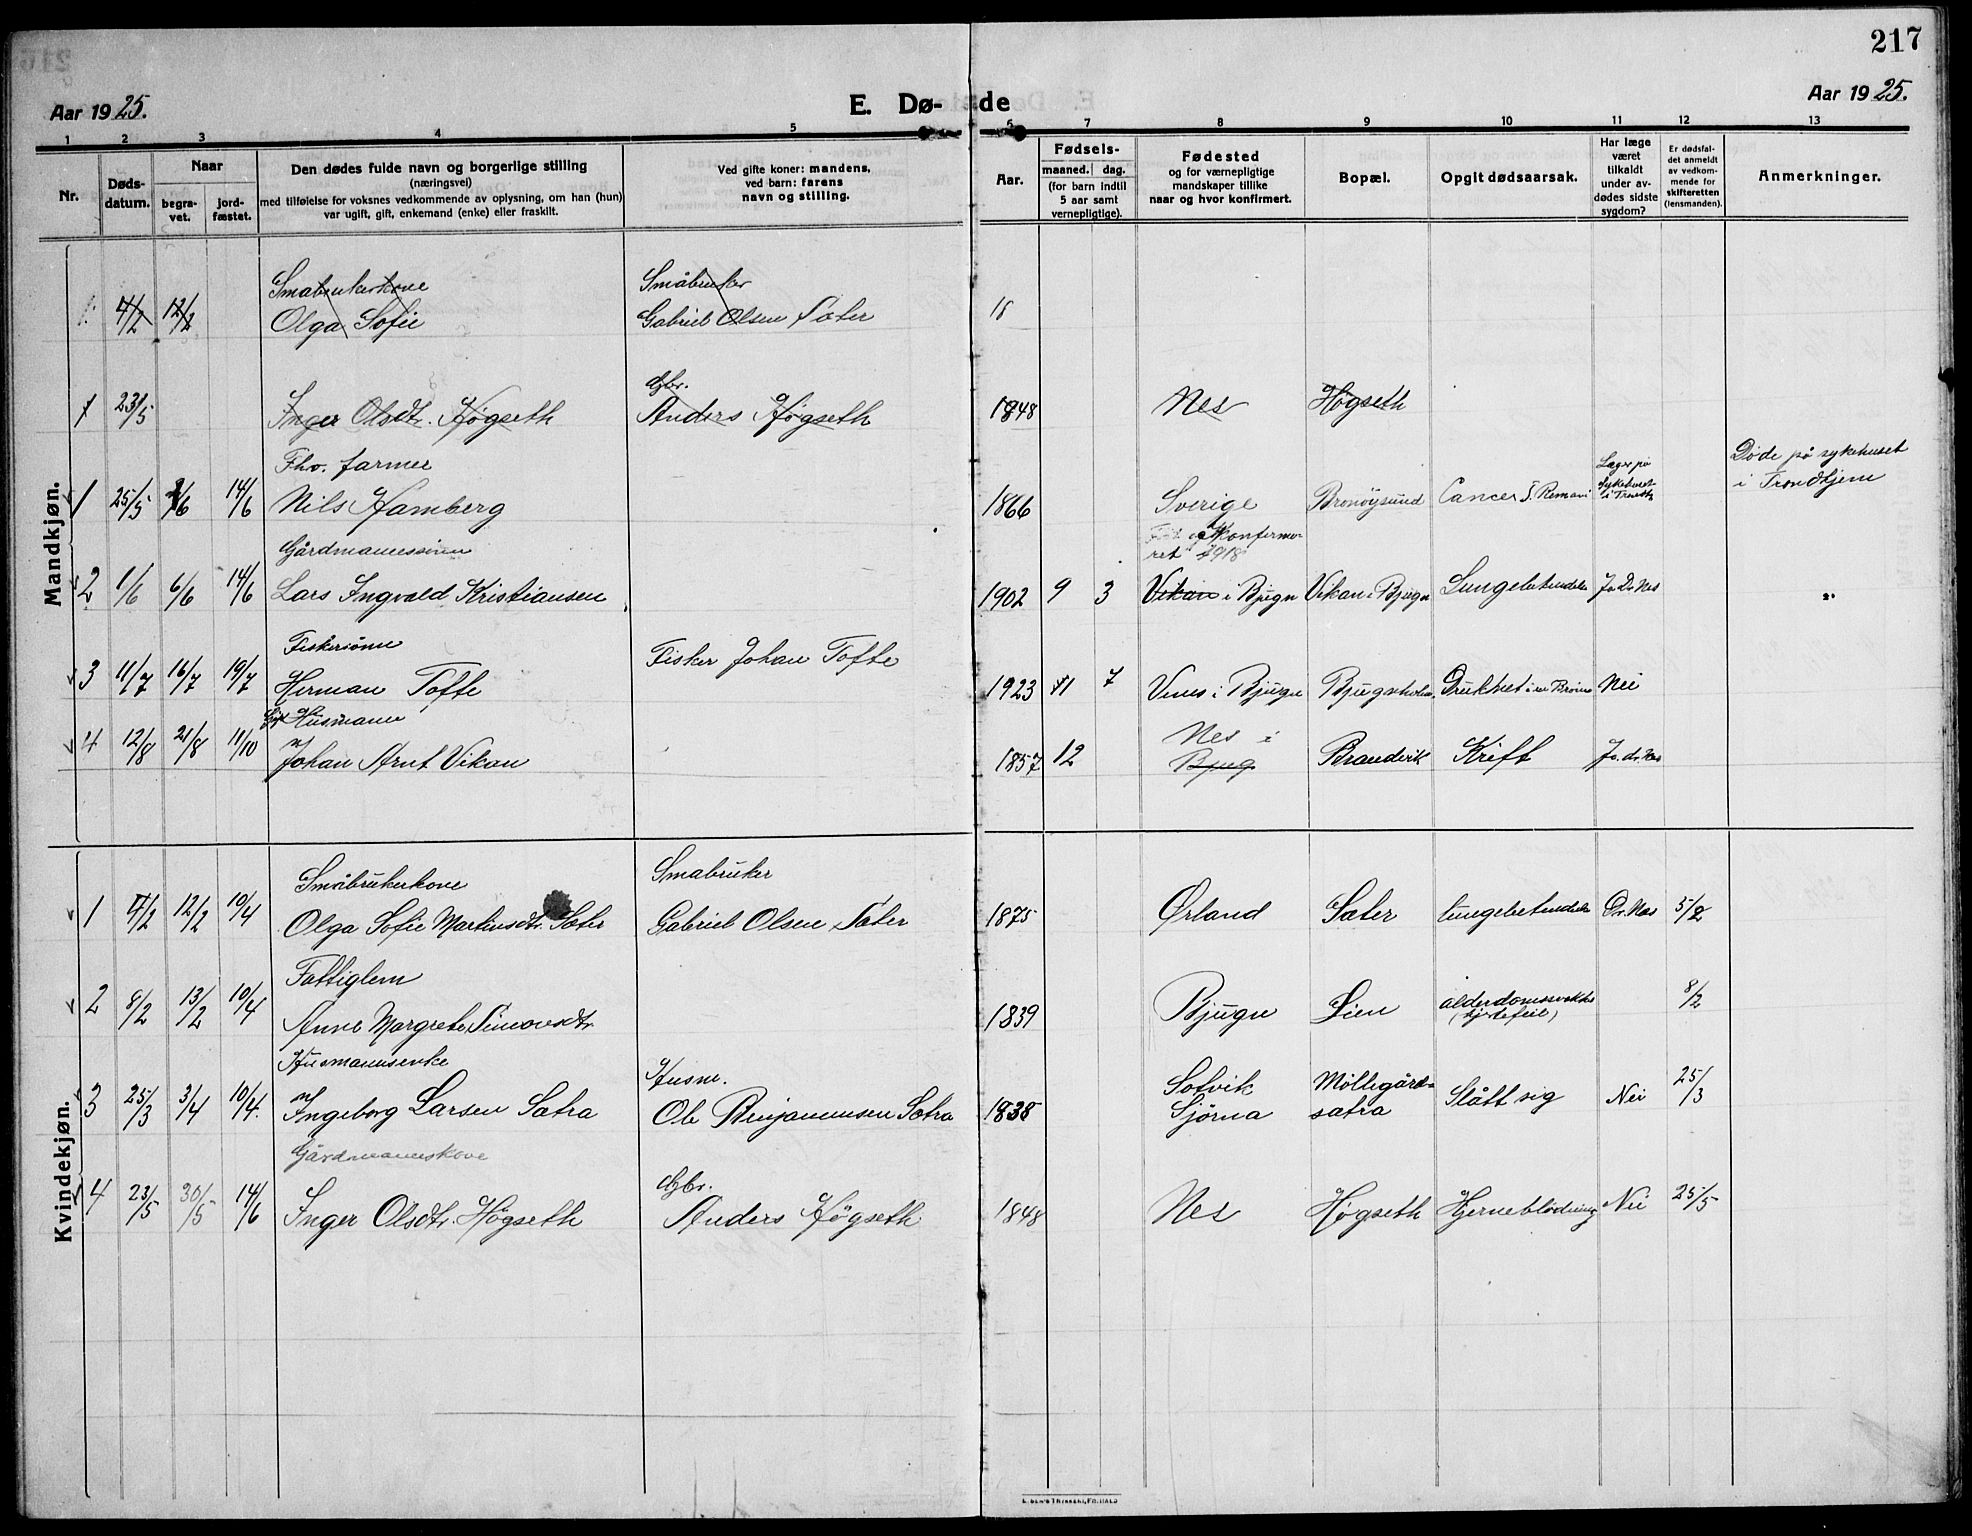 217
Aar 1925.
E. Dø-
de
Aar 1925.
1 2 3 4 5 6 7 8 9 10 11 12 13
Nr.
Døds-
datum.
Naar
begra-
vet.
jord-
fæstet.
Den dødes fulde navn og borgerlige stilling
(næringsvei)
med tilføielse for voksnes vedkommende av oplysning, om han (hun)
var ugift, gift, enkemand (enke) eller fraskilt.
Ved gifte koner: mandens,
ved barn: farens
navn og stilling.
Aar.
Fødsels-
maaned. dag.
(for barn indtil
5 aar samt
vernepligtige).
Fødested
og for værnepligtige
mandskaper tillike
naar og hvor konfirmert.
Bopæl.
Opgit dødsaarsak.
Har læge
været
tilkaldt
under av-
dødes sidste
sygdom?
Er dødsfal-
det anmeldt
av vedkom-
mende for
skifteretten
(lensmanden).
Anmerkninger.
Mandkjøn.
Småbrukerkone Småbruker
1. 4/2 12/2 Olga Sofie Gabriel Olsen Sæter 18
Gbr.
1 23/5 Inger Olsdtr. Høgseth Anders Høgseth 1848 Nes Høgseth
Fhv. farmer
Læger på
sykehuset
Døde på sykehuset
i Trondhjem
1 25/5 /6 14/6 Nils Hamberg 1866 Sverige Brønøysund Cancer
Gårdmannssønn
konfirme-
ret 1918
2 1/6 6/6 14/6 Lars Ingvald Kristiansen 1902 9 3 Vikan i Bjugn Vikan i Bjugn Lungebetendelse Ja. Dr. Næs
Fiskersønn
3 11/7 16/7 19/7 Herman Tofte Fisker Johan Tofte 1923 11 7 i Bjugn Bjugnholm Druknet i en Brønn Nei
Gift Husmann
Nes i
4 12/8 21/8 11/10 Johan Arnt Vikan 1857 12 Bjug Brandvik Kreft Ja. dr. Næs
Kvindekjøn.
Småbrukerkone Småbruker
1 4/2 12/2 10/4 Olga Sofie Martinsdtr. Sæter Gabriel Olsen Sæter 1875 Ørland Sæter lungebetendelse Dr. Næs 5/2
Fattiglem
2 8/2 13/2 10/4 Anne Margrete Simonsdtr. 1839 Bjugn Lien alderdomssvakhet 8/2
(hjertefeil)
Husmannsenke Husm.
Solvik Møllegård-
3 25/3 3/4 10/4. Ingeborg Larsen Sætra Ole Benjaminsen Sætra 1838 Gjørna sætra Slått sig Nei 25/3
Gårdmannskone Gbr.
4 23/5 30/5 14/6 Inger Olsdtr. Høgseth Anders Høgseth 1848 Nes Høgseth Hjerneblødning Nei 25/5